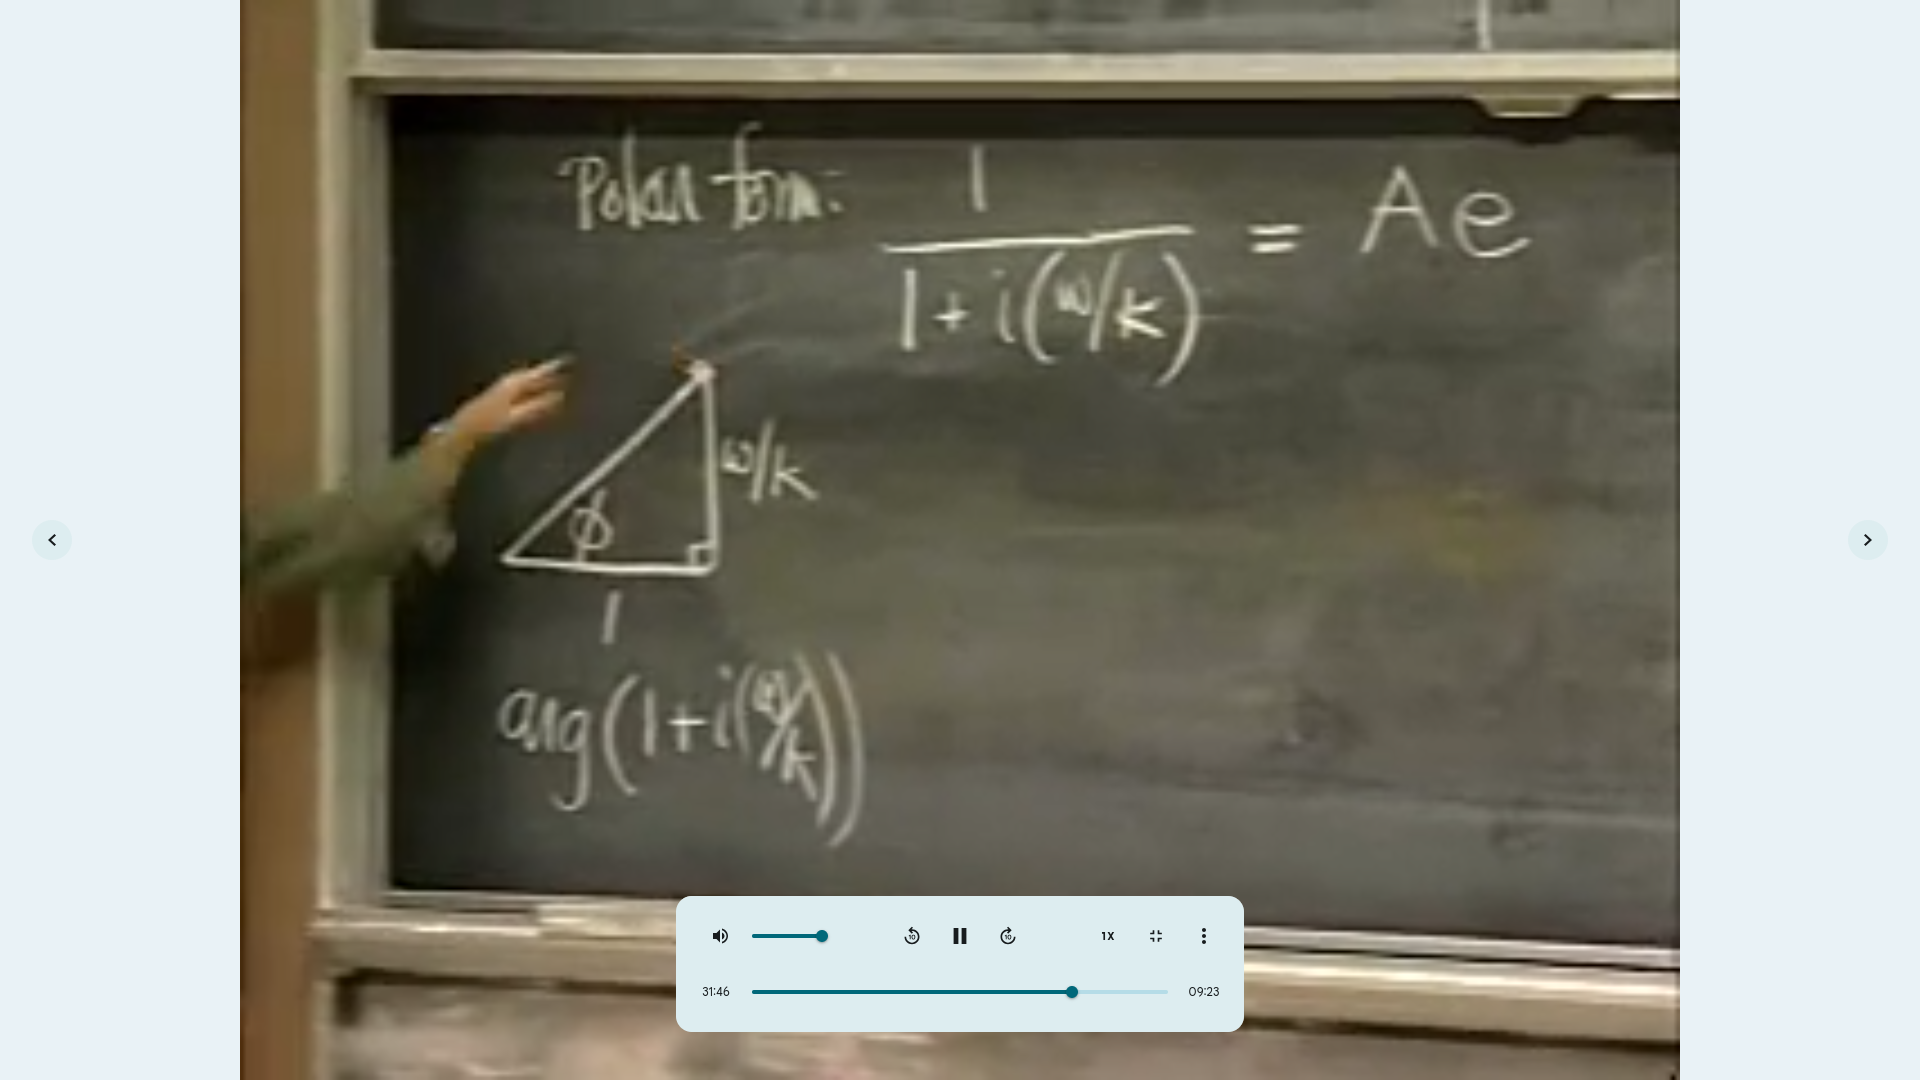 Polar form: 1
1 + i(ω/k) = Ae
ω/k
φ
1
arg(1+i(ω/k))
1X
31:46
09:23